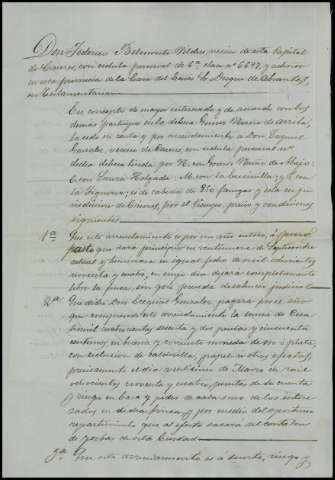 Don Federico Belmonte Vildes, vecino de esta Capital
de Cáceres, con cédula personal de 6ª clase nº 6647, y
en esta provincia de la Casa del Excmo. Sr. Duque de Abrantes,
en
En concepto de mayor interesado y de acuerdo con los
demás partícipes en la dehesa Gomez Nuño de Arriba,
la cedo en renta y por arrendamiento a Don Ezequiel
Gonzalez, vecino de Cáceres, con cédula personal nº
dicha dehesa linda por N. con Gomez Nuño de Abajo;
E. con Santa Holgada; M. con la y O. con
la Higuera; es de cabida de fanegas y está en ju-
risdicción de Cáceres, por el tiempo, precio y condiciones
siguientes
1ª Que este arrendamiento es por un año entero, á puro
pasto que dará principio en veintinueve de Septiembre
actual y terminará en igual fecha de mil ochocientos
noventa y cuatro, en cuyo día dejará completamente
libre la finca, sin que preceda desahucio judicial
2ª Que dicho Don Ezequiel Gonzalez, pagará por el año
que comprende este arrendamiento la suma de
mil cuatrocientas setenta y dos pesetas y cincuenta
céntimos, en buena y corriente moneda de oro ó plata,
con exclusión de calderilla, papel u otros efectos,
precisamente el día veinticinco de Marzo de mil
ochocientos noventa y cuatro, puestas de su cuenta
y riesgo en casa y poder de cada uno de los intere-
sados, en dicha finca y por medio del oportuno
repartimiento que al efecto sacará del contador
de yerbas de esta Ciudad
3ª Que este arrendamiento es á suerte, riesgo y